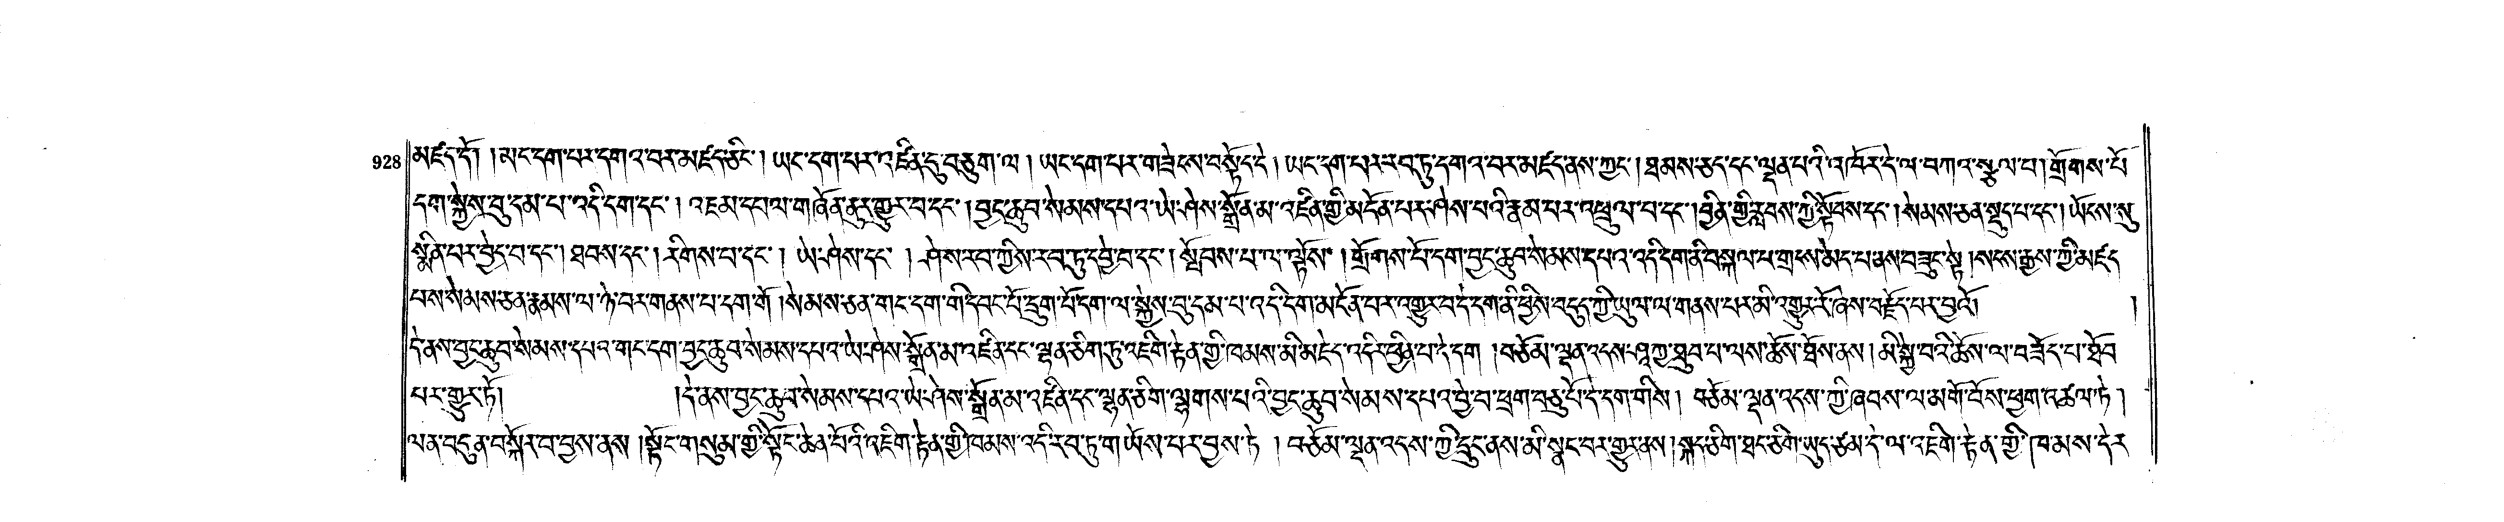 928 མཛད་དོ། །མང་དག་པར་དགའ་བར་མཛད་ཅིང་། ཡང་དག་པར་འཛིན་དུ་བཅུག་ལ། ཡང་དག་པར་གཟེངས་བསྟོད་དེ། ཡང་དག་པར་རབ་ཏུ་དགའ་བར་མཛད་ནས་ཀྱང་། ཐམས་ཅད་དང་ལྡན་པའི་འཁོར་དེ་ལ་བཀའ་སྩལ་པ། གྲོགས་པོ་
དག་སྐྱེས་བུ་དམ་པ་འདི་དག་དང་། འཇམ་དཔལ་གཞོན་ནུར་གྱུར་པ་དང་། བྱང་ཆུབ་སེམས་དཔའ་ཡེ་ཤེས་སྒྲོན་མ་འཛིན་གྱི་མངོན་པར་ཤེས་པའི་རྣམ་པར་འཕྲུལ་པ་དང་། བྱིན་གྱི་རླབས་ཀྱི་སྟོབས་དང་། སེམས་ཅན་སྡུད་པ་དང་། ཡོངས་སུ་
སྨིན་པར་བྱེད་པ་དང་། ཐབས་དང་། རིགས་པ་དང་། ཡེ་ཤེས་དང་། ཤེས་རབ་ཀྱིས་རབ་ཏུ་དབྱེ་བ་དང་། སྤོབས་པ་ལ་ལྟོས། །གྲོགས་པོ་དག་བྱང་ཆུབ་སེམས་དཔའ་འདི་དག་ནི་བསྐལ་པ་གྲངས་མེད་པ་ནས་བཟུང་སྟེ། སངས་རྒྱས་ཀྱི་མཛད་
པས་སེམས་ཅན་རྣམས་ལ་ཉེ་བར་གནས་པ་དག་གོ། །སེམས་ཅན་གང་དག་གི་དབང་པོ་དྲུག་པོ་དག་ལ་སྐྱེས་བུ་དམ་པ་འདི་དག་མངོན་པར་འགྱུར་བ་དེ་དག་ནི་ཕྱིས་བདུད་ཀྱི་ཡུལ་ལ་གནས་པར་མི་འགྱུར་རོ་ཞེས་བརྗོད་པར་བྱའོ། །
དེ་ནས་བྱང་ཆུབ་སེམས་དཔའ་གང་དག་བྱང་ཆུབ་སེམས་དཔའ་ཡེ་ཤེས་སྒྲོན་མ་འཛིན་དང་ལྷན་ཅིག་ཏུ་འཇིག་རྟེན་གྱི་ཁམས་མི་མཇེད་འདིར་ཕྱིན་པ་དེ་དག །བཅོམ་ལྡན་འདས་ཤཱཀྱ་ཐུབ་པ་ལས་ཆོས་ཐོས་ནས། མི་སྐྱེ་བའི་ཆོས་ལ་བཟོད་པ་ཐོབ་
པར་གྱུར་ཏོ། །དེ་ནས་བྱང་ཆུབ་སེམས་དཔའ་ཡེ་ཤེས་སྒྲོན་མ་འཛིན་དང་ལྷན་ཅིག་ལྷགས་པའི་བྱང་ཆུབ་སེམས་དཔའ་བྱེ་བ་ཕྲག་བཅུ་པོ་དེ་དག་གིས། བཅོམ་ལྡན་འདས་ཀྱི་ཞབས་ལ་མགོ་བོས་ཕྱག་འཚལ་ཏེ།
ལན་བདུན་བསྐོར་བ་བྱས་ནས། སྟོང་གསུམ་གྱི་སྟོང་ཆེན་པོའི་འཇིག་རྟེན་གྱི་ཁམས་འདི་རབ་ཏུ་གཡོས་པར་བྱས་ཏེ། བཅོམ་ལྡན་འདས་ཀྱི་དྲུང་ནས་མི་སྣང་བར་གྱུར་ནས། སྐད་ཅིག་ཐང་ཅིག་ཡུད་ཙམ་དེ་ལ་འཇིག་རྟེན་གྱི་ཁམས་དེར་